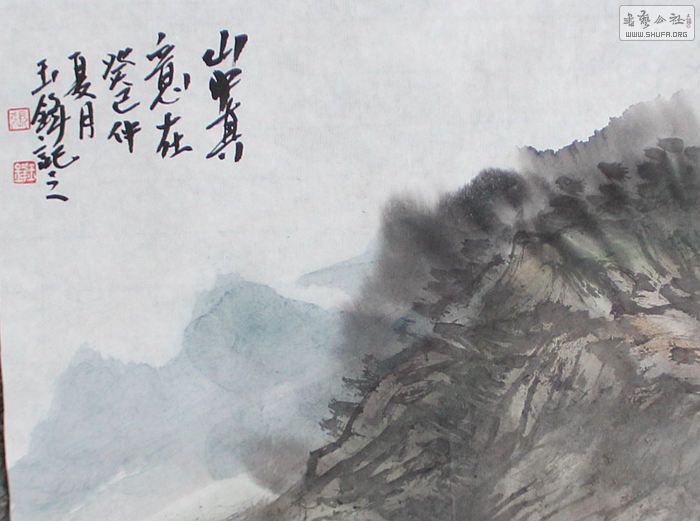 山中真
意在
癸巳仲
夏月
玉鋒記之
書藝公社
WWW.SHUFA.ORG